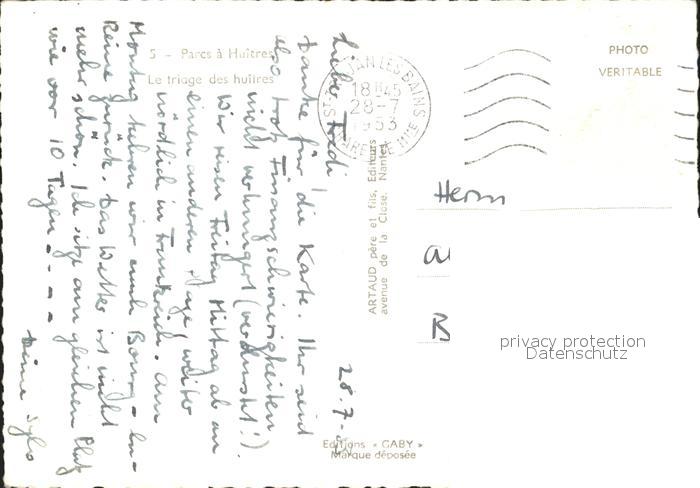 5 - Parcs à Huîtres
Le triage des huîtres
ST-JEAN LES BAINS
18H45
28-7
1953
PHOTO
VERITABLE
ARTAUD père et fils, Editeurs
avenue de la Close, Nantes
Editions « GABY »
Marque déposée
Herrn
B
privacy protection
Datenschutz
28.7.
Liebe Fredi!
Danke für die Karte. Ihr seid
also trotz Finanzschwierigkeiten
nicht verhungert (verdurstet!).
Wir reisen Freitag Mittag ab an
einen anderen Plage, weiter
nördlich in Frankreich. Am
Montag fahren wir nach Bourg-la-
Reine zurück. Das Wetter ist nicht
mehr schön. Ich sitze am gleichen Platz
wie vor 10 Tagen - - -
Deine Sylvo